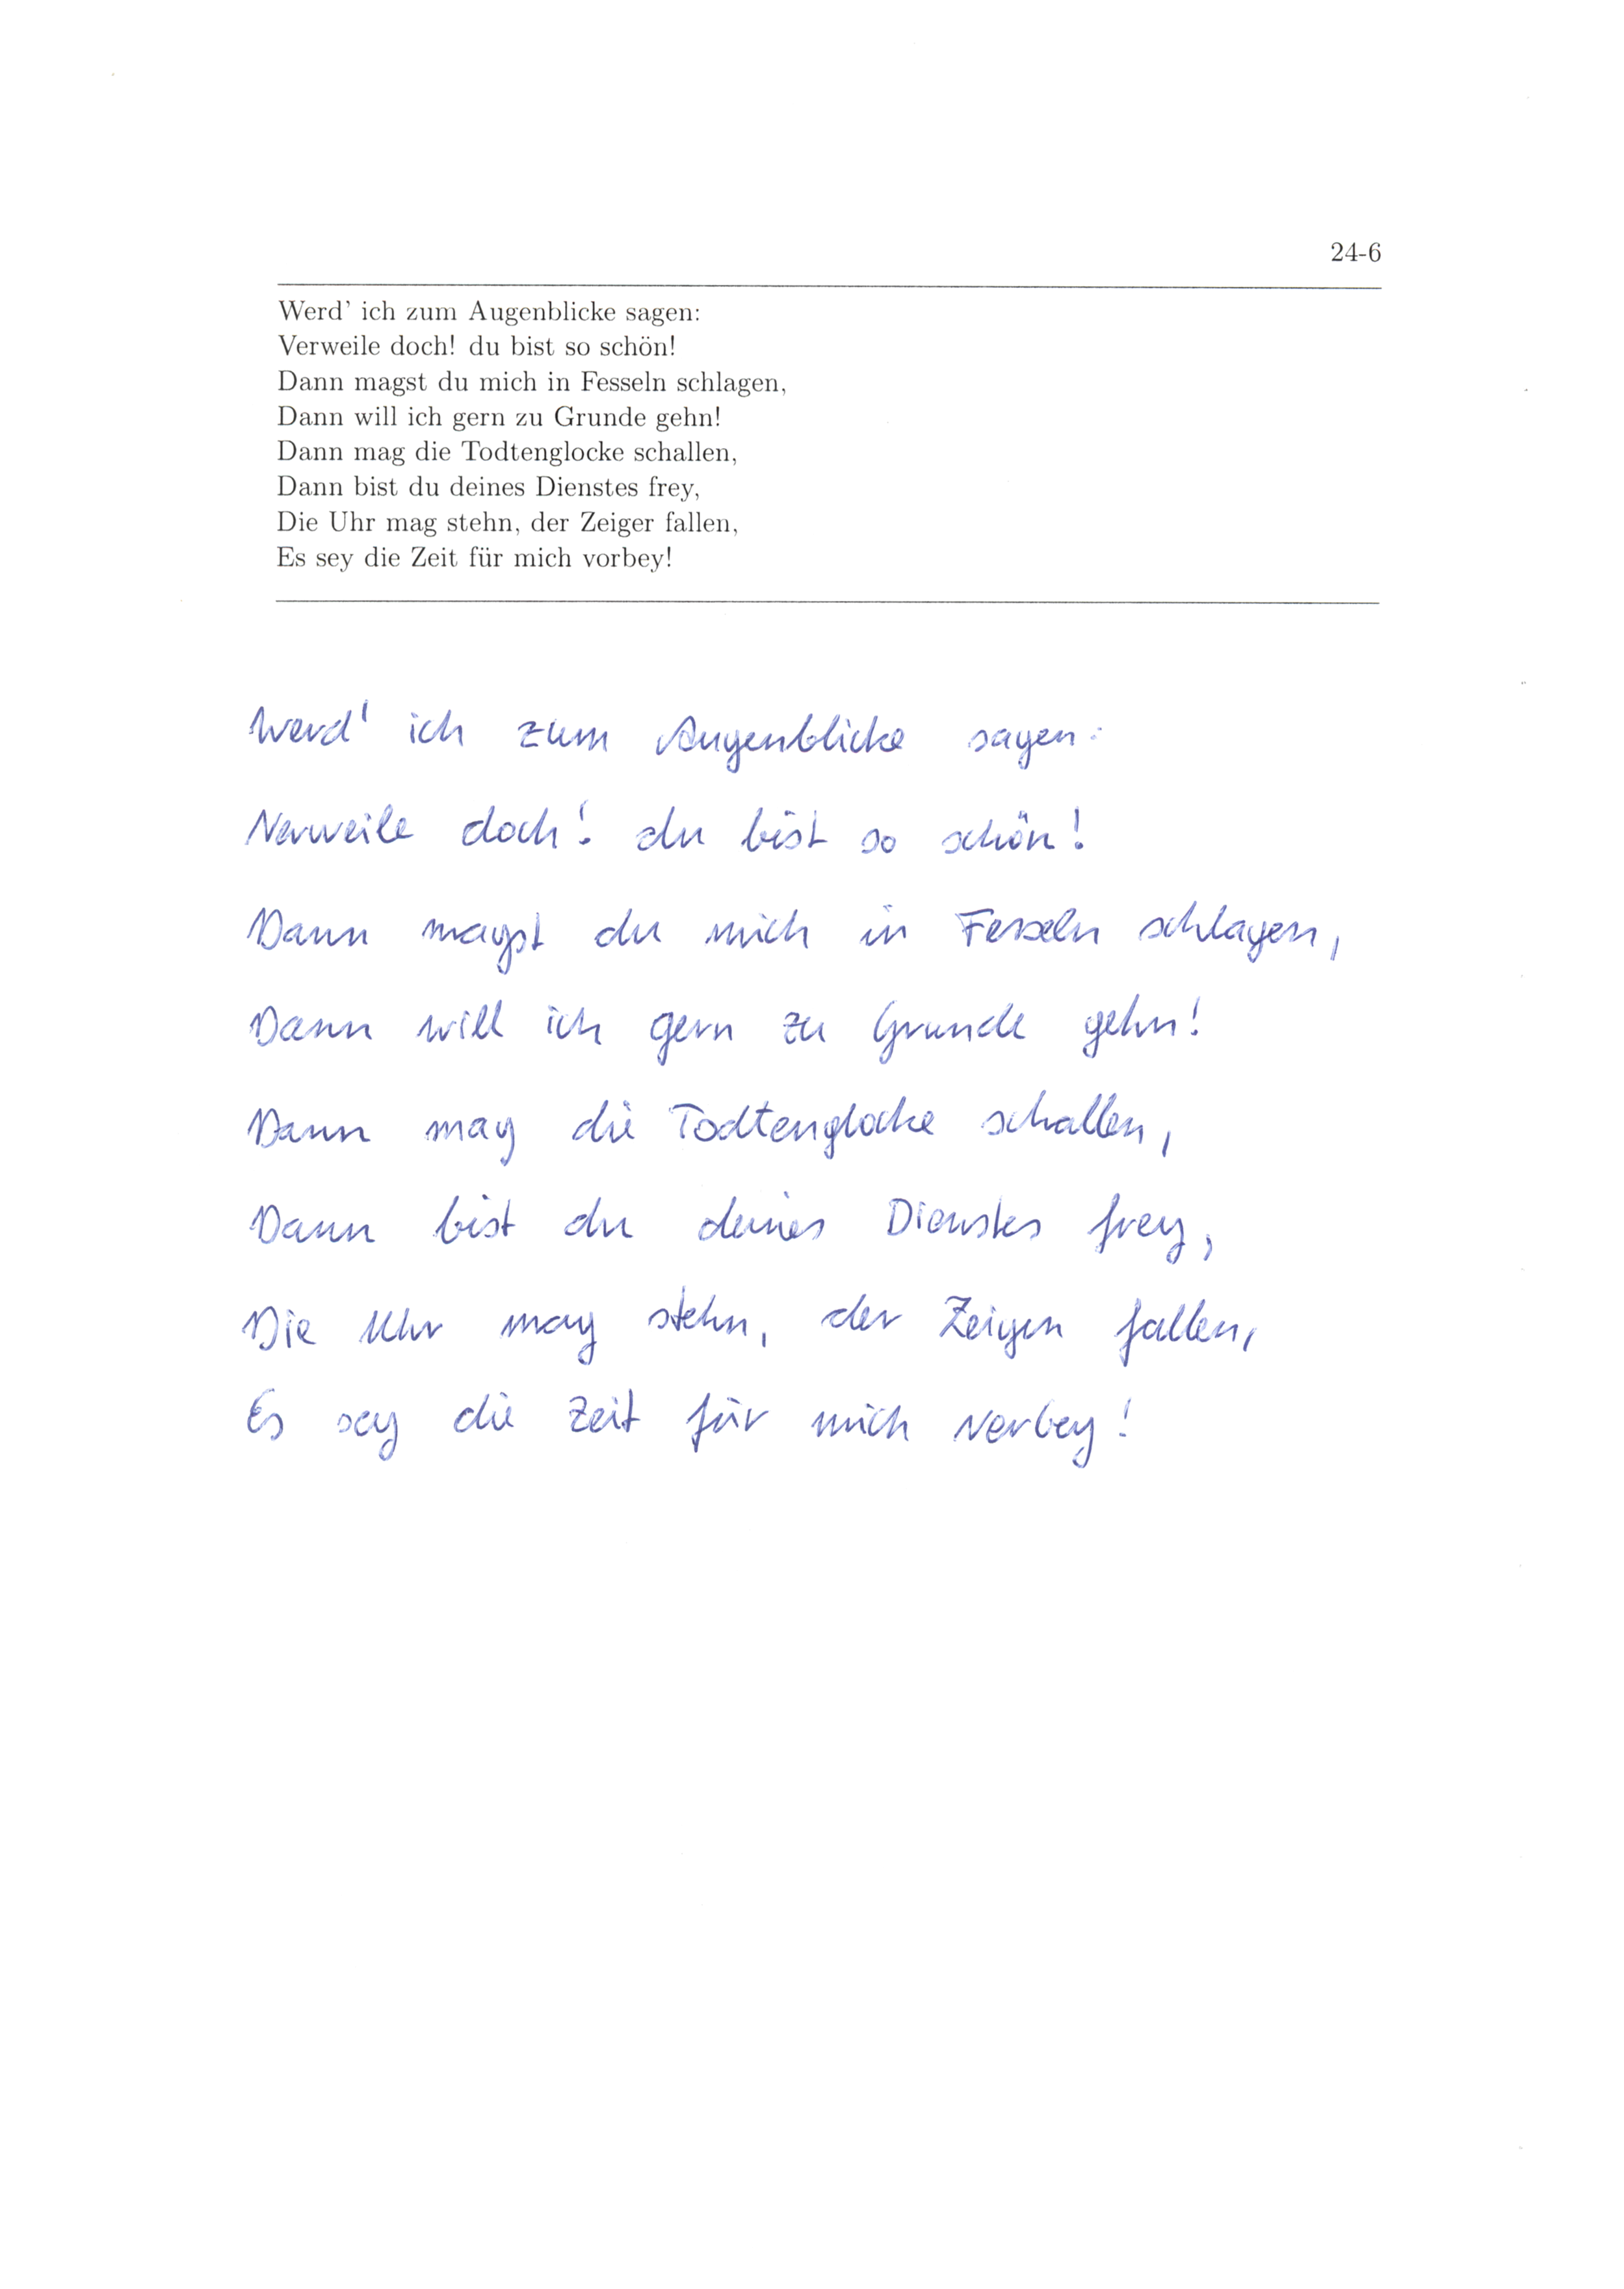 24-6
Werd' ich zum Augenblicke sagen:
Verweile doch! du bist so schön!
Dann magst du mich in Fesseln schlagen,
Dann will ich gern zu Grunde gehn!
Dann mag die Todtenglocke schallen,
Dann bist du deines Dienstes frey,
Die Uhr mag stehn, der Zeiger fallen,
Es sey die Zeit für mich vorbey!
Werd' ich zum Augenblicke sagen:
Verweile doch! du bist so schön!
Dann magst du mich in Fesseln schlagen,
Dann will ich gern zu Grunde gehn!
Dann mag die Todtenglocke schallen,
Dann bist du deines Dienstes frey,
Die Uhr mag stehn, der Zeigen fallen,
Es sey die Zeit für mich verbey!